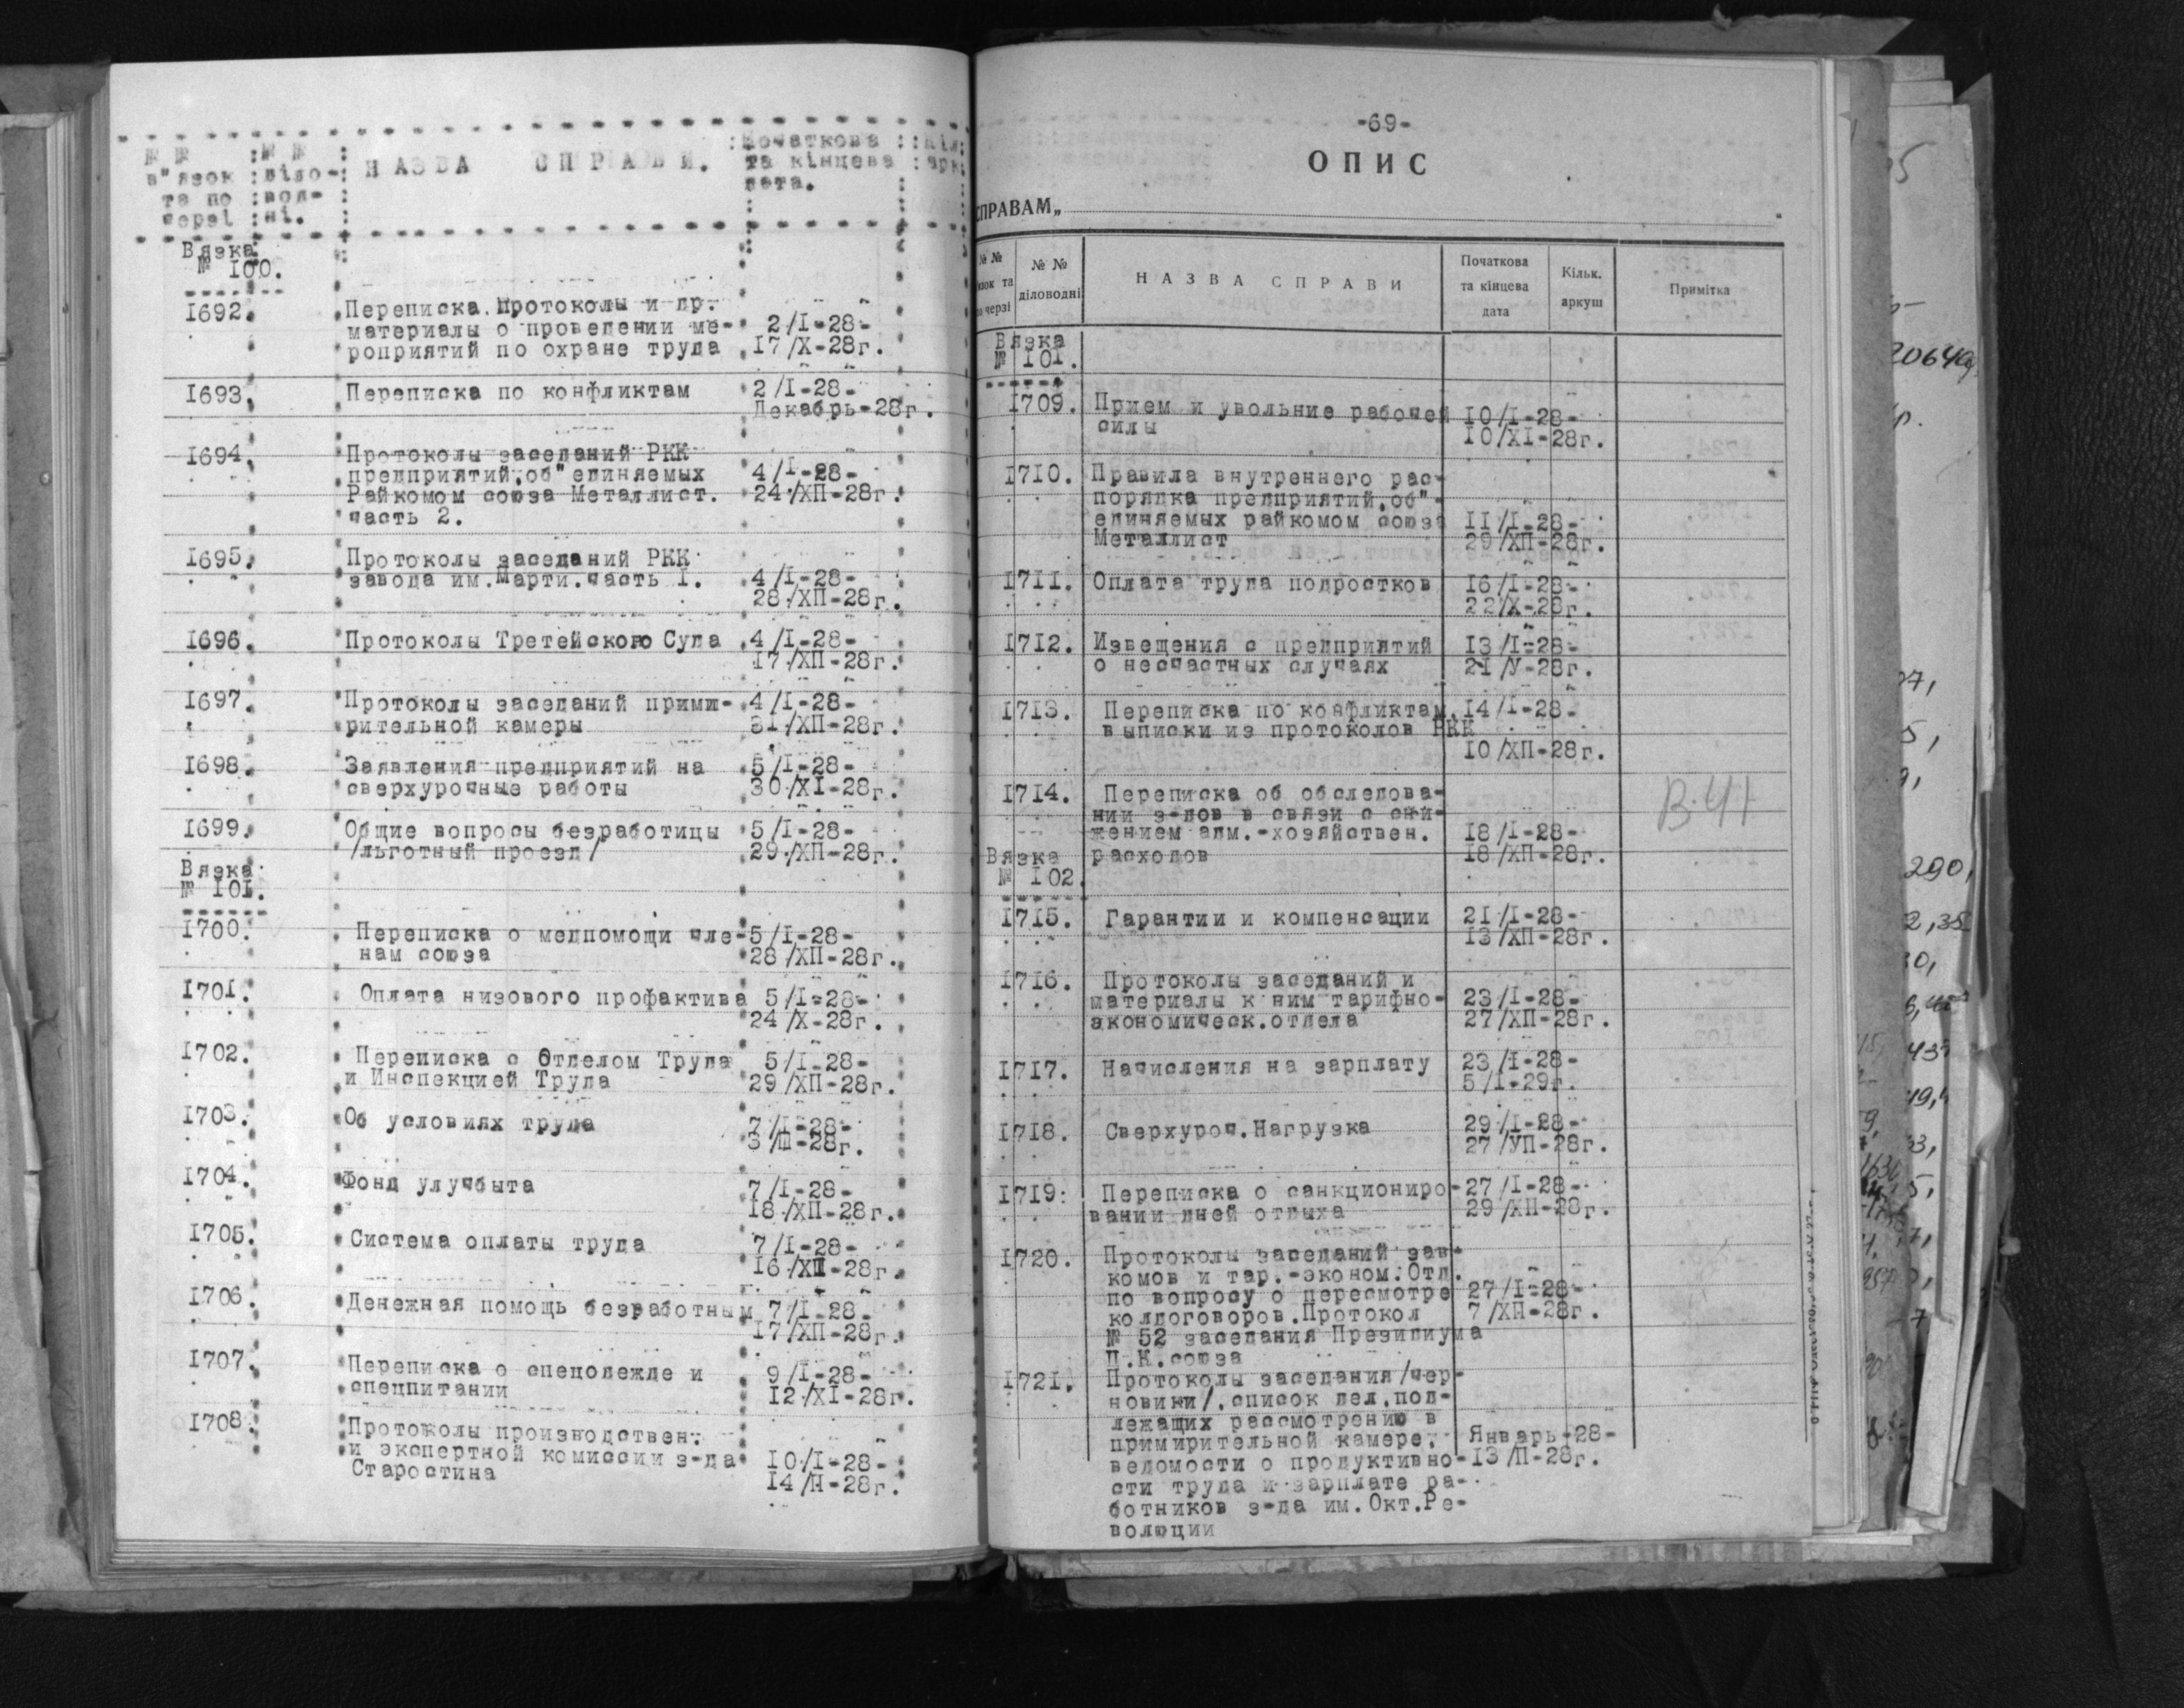 № №
в"язок
та по
черзі
№ №
діло-
вод-
ні.
НАЗВА СПРАВИ.
Початкова
та кінцева
дата.
Кіл.
арк.
Вязка
№ 100.
1692. Переписка, протоколы и др.
материалы о проведении ме- 2/I-28-
роприятий по охране труда 17/X-28г.
1693. Переписка по конфликтам 2/I-28-
Декабрь-28г.
1694. Протоколы заседаний РКК
предприятий,об"единяемых 4/I-28-
Райкомом союза Металлист. 24/ХП-28г.
часть 2.
1695. Протоколы заседаний РКК
завода им.Марти.часть I. 4/I-28-
28/ХП-28г.
1696. Протоколы Третейского Суда 4/I-28-
17/ХП-28г.
1697. Протоколы заседаний прими- 4/I-28-
рительной камеры 31/ХП-28г.
1698. Заявления предприятий на 5/I-28-
сверхурочные работы 30/XI-28г.
1699. Общие вопросы безработицы 5/I-28-
/льготный проезд/ 29/ХП-28г.
Вязка
№ 101.
1700. Переписка о медпомощи чле- 5/I-28-
нам союза 28/ХП-28г.
1701. Оплата низового профактива 5/I-28-
24/X-28г.
1702. Переписка с Отделом Труда 5/I-28-
и Инспекцией Труда 29/ХП-28г.
1703. Об условиях труда 7/I-28-
3/Ш-28г.
1704. Фонд улучбыта 7/I-28-
18/ХП-28г.
1705. Система оплаты труда 7/I-28-
16/ХП-28г.
1706. Денежная помощь безработным 7/I-28-
17/ХП-28г.
1707. Переписка о спецодежде и 9/I-28-
спецпитании 12/XI-28г.
1708. Протоколы производствен.
и экспертной комиссии з-да 10/I-28-
Старостина 14/П-28г.
-69-
ОПИС
СПРАВАМ„
№ №
язок та
по черзі
№ №
діловодні
НАЗВА СПРАВИ
Початкова
та кінцева
дата
Кільк.
аркуш
Примітка
Вязка
№ 101.
1709. Прием и увольние рабочей 10/I-28-
силы 10/XI-28г.
1710. Правила внутреннего рас-
порядка предприятий,об"-
единяемых райкомом союза 11/I-28-
Металлист 29/ХП-28г.
1711. Оплата труда подростков 16/I-28-
22/X-28г.
1712. Извещения с предприятий 13/I-28-
о несчастных случаях 21/У-28г.
1713. Переписка по конфликтам, 14/I-28-
выписки из протоколов РКК
10/ХП-28г.
1714. Переписка об обследова-
нии з-дов в связи с сни-
жением адм.-хозяйствен. 18/I-28-
расходов 18/ХП-28г.
В-41
Вязка
№ 102.
1715. Гарантии и компенсации 21/I-28-
13/ХП-28г.
1716. Протоколы заседаний и
материалы к ним тарифно- 23/I-28-
экономическ.отдела 27/ХП-28г.
1717. Начисления на зарплату 23/I-28-
5/I-29г.
1718. Сверхуроч.Нагрузка 29/I-28-
27/УП-28г.
1719. Переписка о санкциониро- 27/I-28-
вании дней отдыха 29/ХП-28г.
1720. Протоколы заседаний зав-
комов и тар.-эконом.Отд.
по вопросу о пересмотре 27/I-28-
колдоговоров.Протокол 7/ХП-28г.
№ 52 заседания Президиума
Ц.К.союза
1721. Протоколы заседания/чер-
новики/,список дел,под-
лежащих рассмотрению в
примирительной камере, Январь-28-
ведомости о продуктивно- 13/П-28г.
сти труда и зарплате ра-
ботников з-да им.Окт.Ре-
волюции